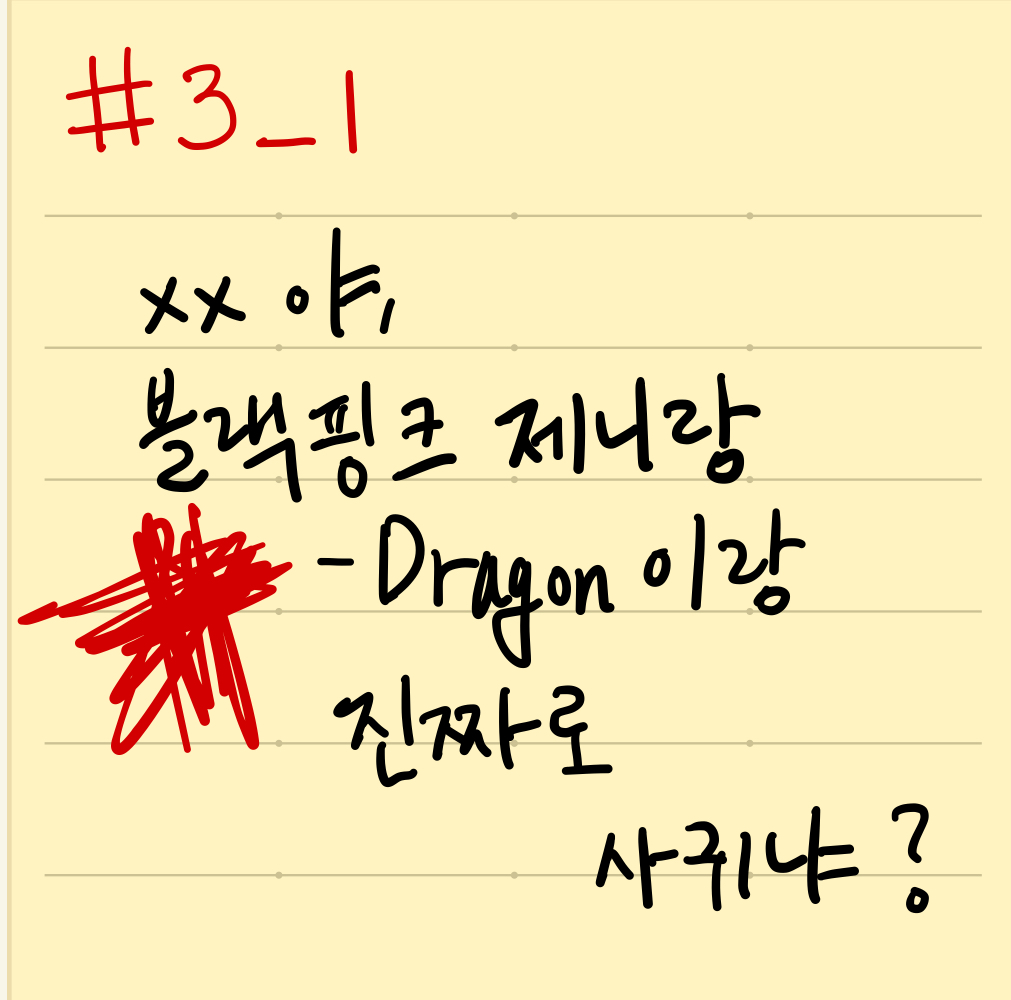 #3_1
xx 야,
블랙핑크 제니랑
-Dragon 이랑
진짜로
사귀냐?